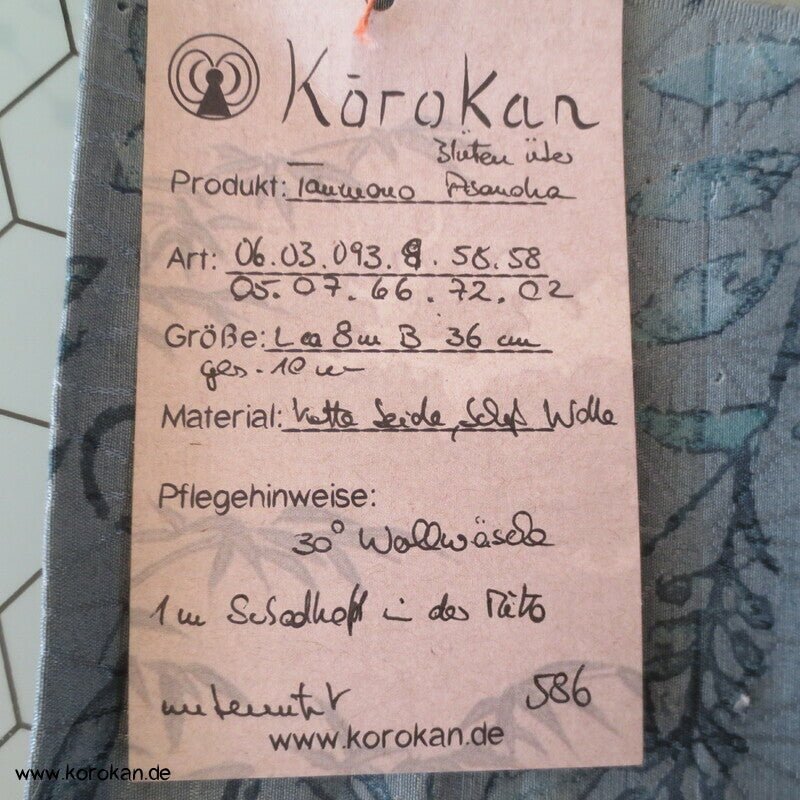 Kōrokan
Blüten über
Produkt: Tanmono Asanoha
Art: 06.03.093.9.58.58
05.07.66.72.02
Größe: L ca 8m B 36 cm
ges. 10 m
Material: Kette Seide, Schuß Wolle
Pflegehinweise:
30° Wollwäsche
1m Schadhaft in der Mitte
unbenutzt
586
www.korokan.de
www.korokan.de